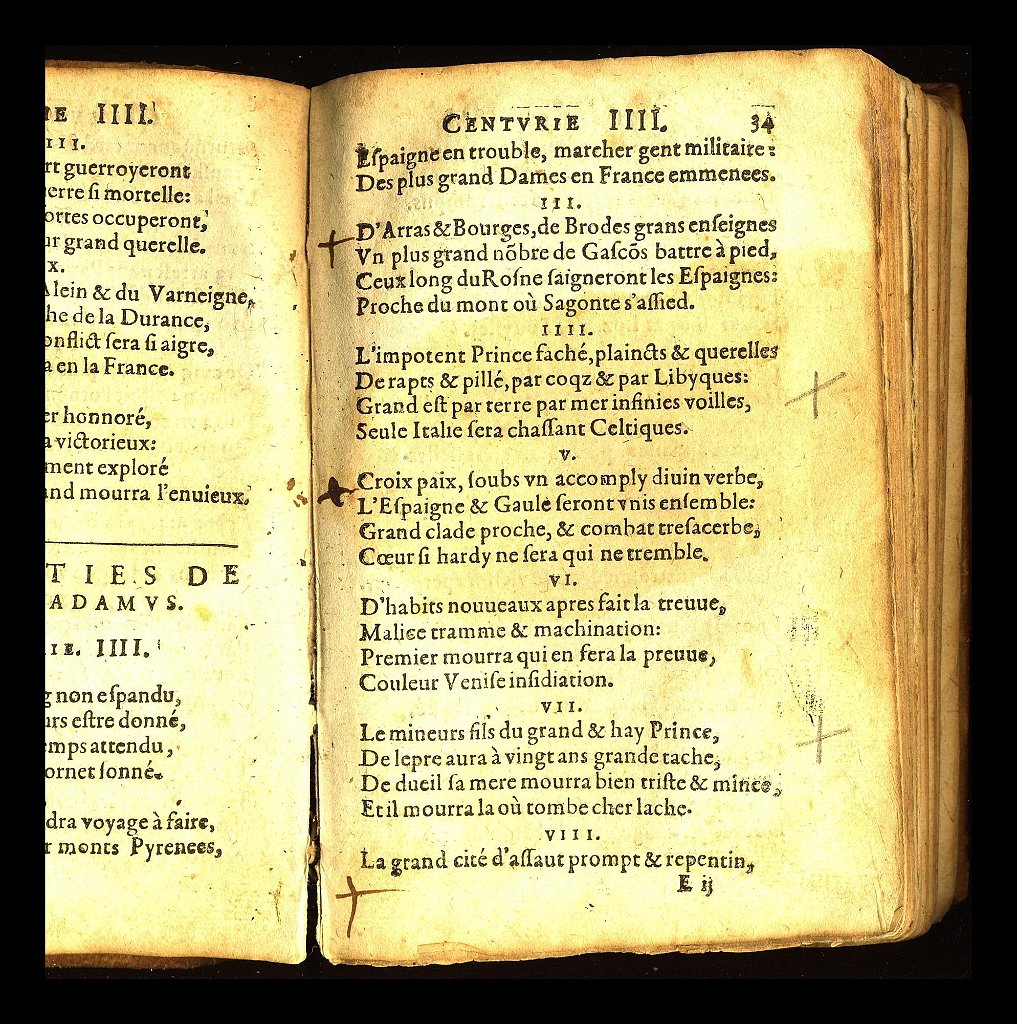 IE IIII.
III.
rt guerroyeront
erre ſi mortelle:
ortes occuperont,
ur grand querelle.
X.
Alein & du Varneigne,
he de la Durance,
onflict ſera ſi aigre,
a en la France.
er honnoré,
a victorieux:
ment exploré
and mourra l'enuieux.
TIES DE
ADAMVS.
IE. IIII.
g non eſpandu,
urs eſtre donné,
emps attendu,
ornet ſonné.
dra voyage à faire,
r monts Pyrenees,
CENTVRIE IIII. 34
Eſpaigne en trouble, marcher gent militaire:
Des plus grand Dames en France emmenees.
III.
D'Arras & Bourges, de Brodes grans enſeignes
Vn plus grand nõbre de Gaſcõs battre à pied,
Ceux long du Roſne ſaigneront les Eſpaignes:
Proche du mont où Sagonte s'aſſied.
IIII.
L'impotent Prince faché, plaincts & querelles
De rapts & pillé, par coqz & par Libyques:
Grand eſt par terre par mer infinies voilles,
Seule Italie ſera chaſſant Celtiques.
V.
Croix paix, ſoubs vn accomply diuin verbe,
L'Eſpaigne & Gaule ſeront vnis enſemble:
Grand clade proche, & combat treſacerbe,
Cœur ſi hardy ne ſera qui ne tremble.
VI.
D'habits nouueaux apres fait la treuue,
Malice tramme & machination:
Premier mourra qui en fera la preuue,
Couleur Veniſe inſidiation.
VII.
Le mineurs fils du grand & hay Prince,
De lepre aura à vingt ans grande tache,
De dueil ſa mere mourra bien triſte & mince,
Et il mourra la où tombe cher lache.
VIII.
La grand cité d'aſſaut prompt & repentin,
E ij